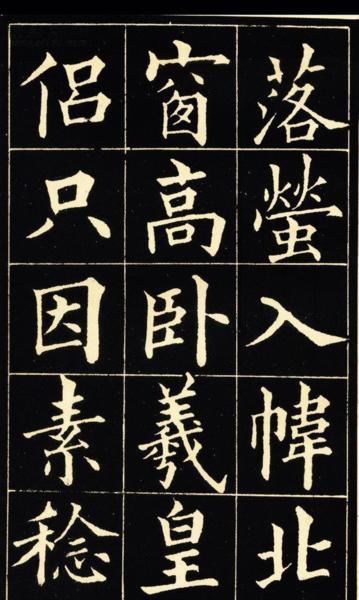 落螢入幃北
窗高卧羲皇
侶只因素稔